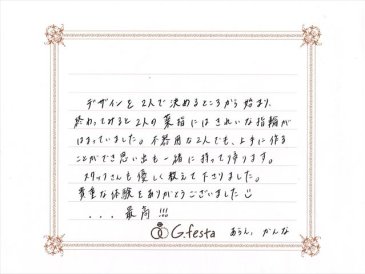 デザインを2人で決めるところから始まり、
終わってみると2人の薬指にはきれいな指輪が
はまっていました。不器用な2人でも、上手に作る
ことができ思い出も一緒に持って帰ります。
スタッフさんも優しく教えて下さりました。
貴重な体験をありがとうございました
...最高!!!
G.festa かんな